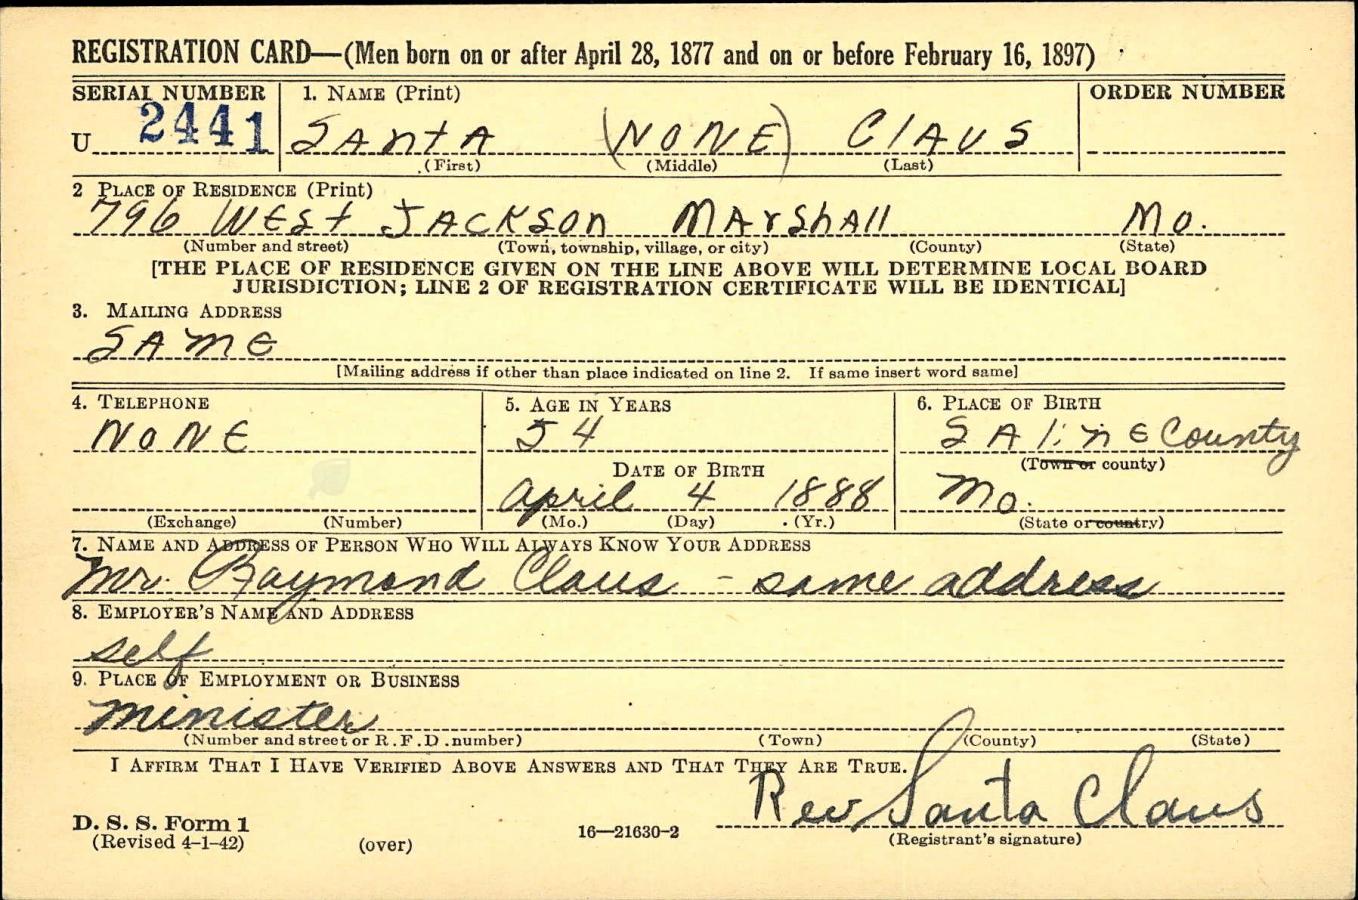 REGISTRATION CARD—(Men born on or after April 28, 1877 and on or before February 16, 1897)
SERIAL NUMBER 1. NAME (Print) ORDER NUMBER
U 2441 SANTA (NONE) CLAUS
(First) (Middle) (Last)
2 PLACE OF RESIDENCE (Print)
796 WEST JACKSON MARSHALL MO.
(Number and street) (Town, township, village, or city) (County) (State)
[THE PLACE OF RESIDENCE GIVEN ON THE LINE ABOVE WILL DETERMINE LOCAL BOARD
JURISDICTION; LINE 2 OF REGISTRATION CERTIFICATE WILL BE IDENTICAL]
3. MAILING ADDRESS
SAME
[Mailing address if other than place indicated on line 2. If same insert word same]
4. TELEPHONE 5. AGE IN YEARS 6. PLACE OF BIRTH
NONE 54 SALINE County
DATE OF BIRTH (Town or county)
April 4 1888 Mo.
(Exchange) (Number) (Mo.) (Day) (Yr.) (State or country)
7. NAME AND ADDRESS OF PERSON WHO WILL ALWAYS KNOW YOUR ADDRESS
Mr. Raymond Claus - same address
8. EMPLOYER'S NAME AND ADDRESS
self
9. PLACE OF EMPLOYMENT OR BUSINESS
minister
(Number and street or R.F.D. number) (Town) (County) (State)
I AFFIRM THAT I HAVE VERIFIED ABOVE ANSWERS AND THAT THEY ARE TRUE.
Rev Santa Claus
D. S. S. Form 1 16—21630-2 (Registrant's signature)
(Revised 4-1-42) (over)